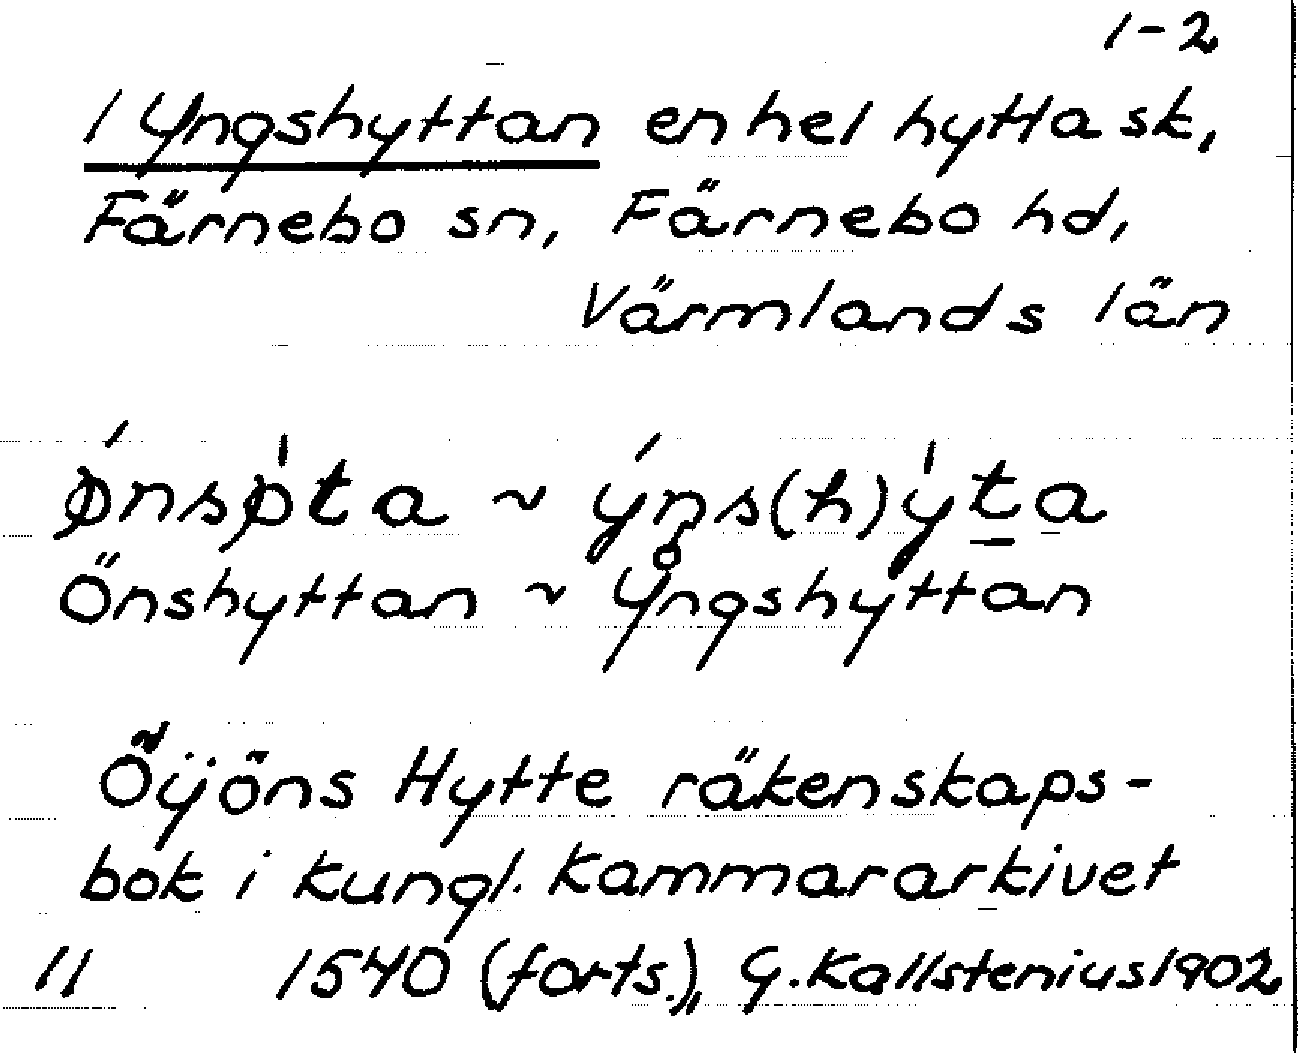 1-2
1 Yngshyttan enhel hyttask,
Färnebo sn, Färnebo hd,
Värmlands län
ǿnsøta ~ ýns(h)yta
Önshyttan ~ Yngshyttan
Öÿöns Hytte räkenskaps-
bok i kungl. Kammararkivet
11 1540 (forts.)," G. Kallstenius 1902